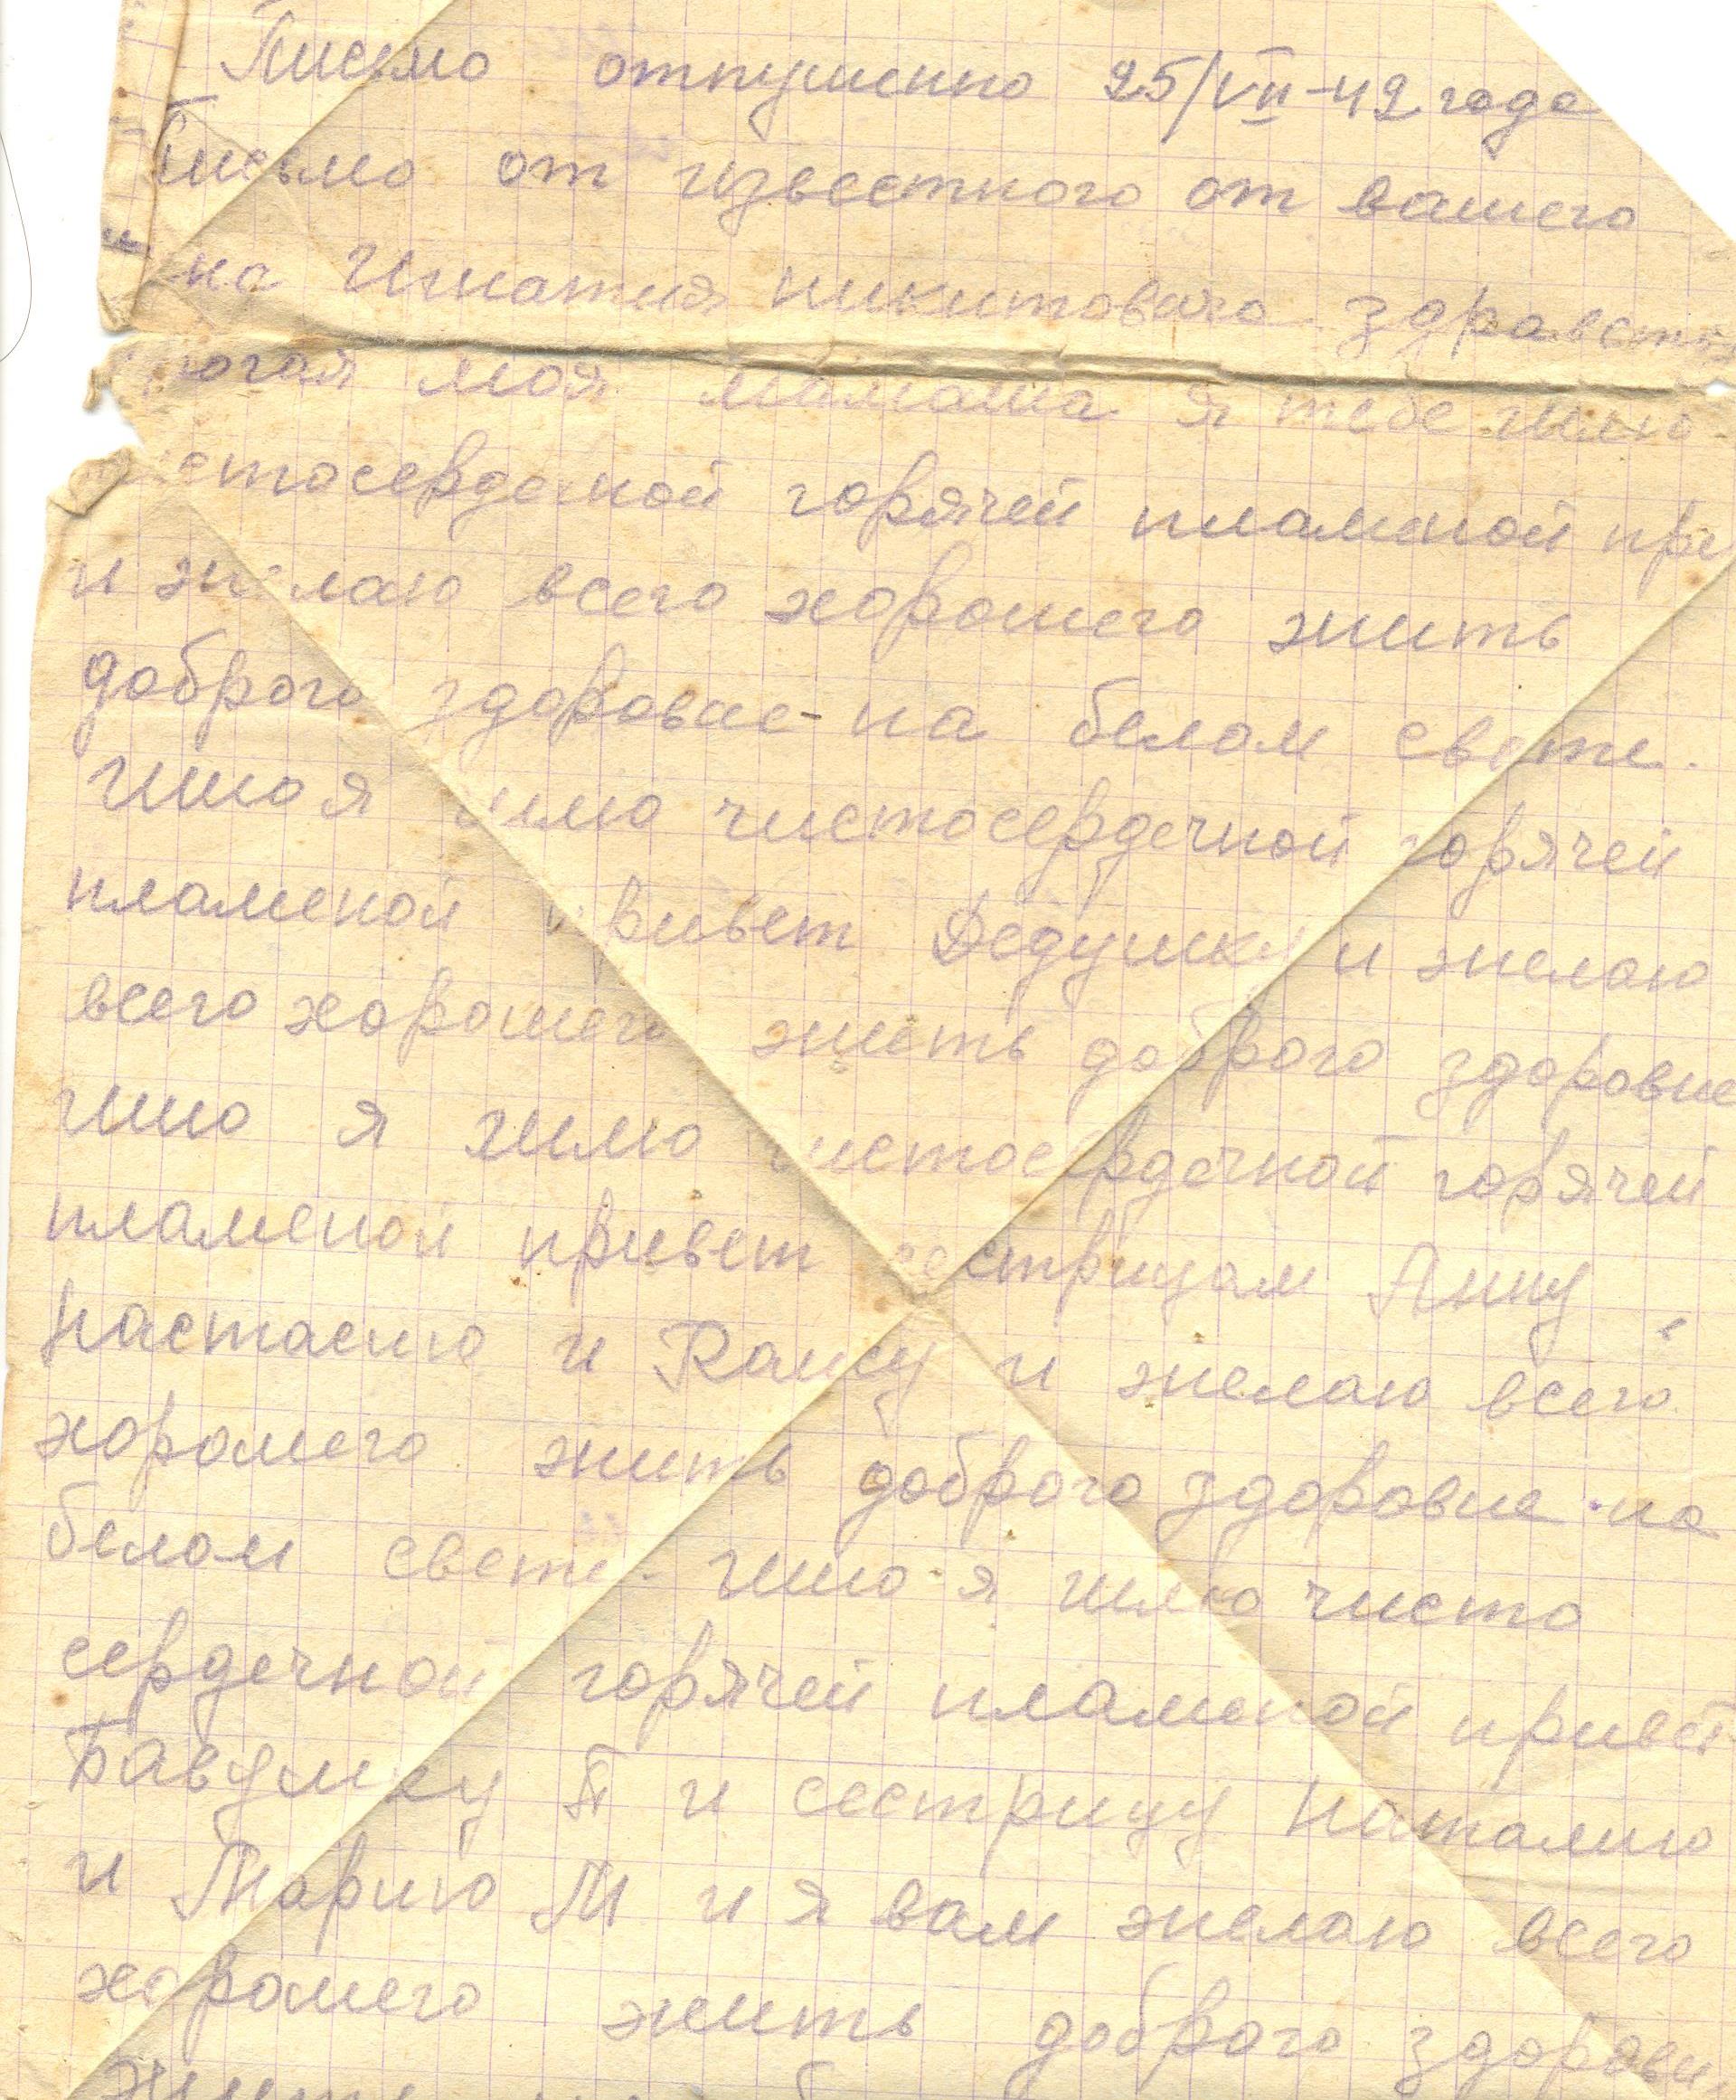 Письмо отпушенно 25/VII-42 года
Письмо от извесстного от вашего
на Игнатия никитовича здравств
рогая моя мамаша я тебе шлю
стосердечной горячей пламеной при
и желаю всего хорошего жить
доброго здоровие на белом свете.
Ишо я шлю чистосердечной горячей
пламеной привет Дедушки и желаю
всего хорошего жить доброго здоровие
ишо я шлю чистосердечной горячей
пламеной привет сестрицам Анну
Настасию и Раису и желаю всего
хорошего жить доброго здоровие на
белом свети. Ишо я шлю чисто
сердечной горячей пламеной привет
Бавушку П и сестрицу Наталию
и Марию М и я вам желаю всего
хорошего жить доброго здорови
жить